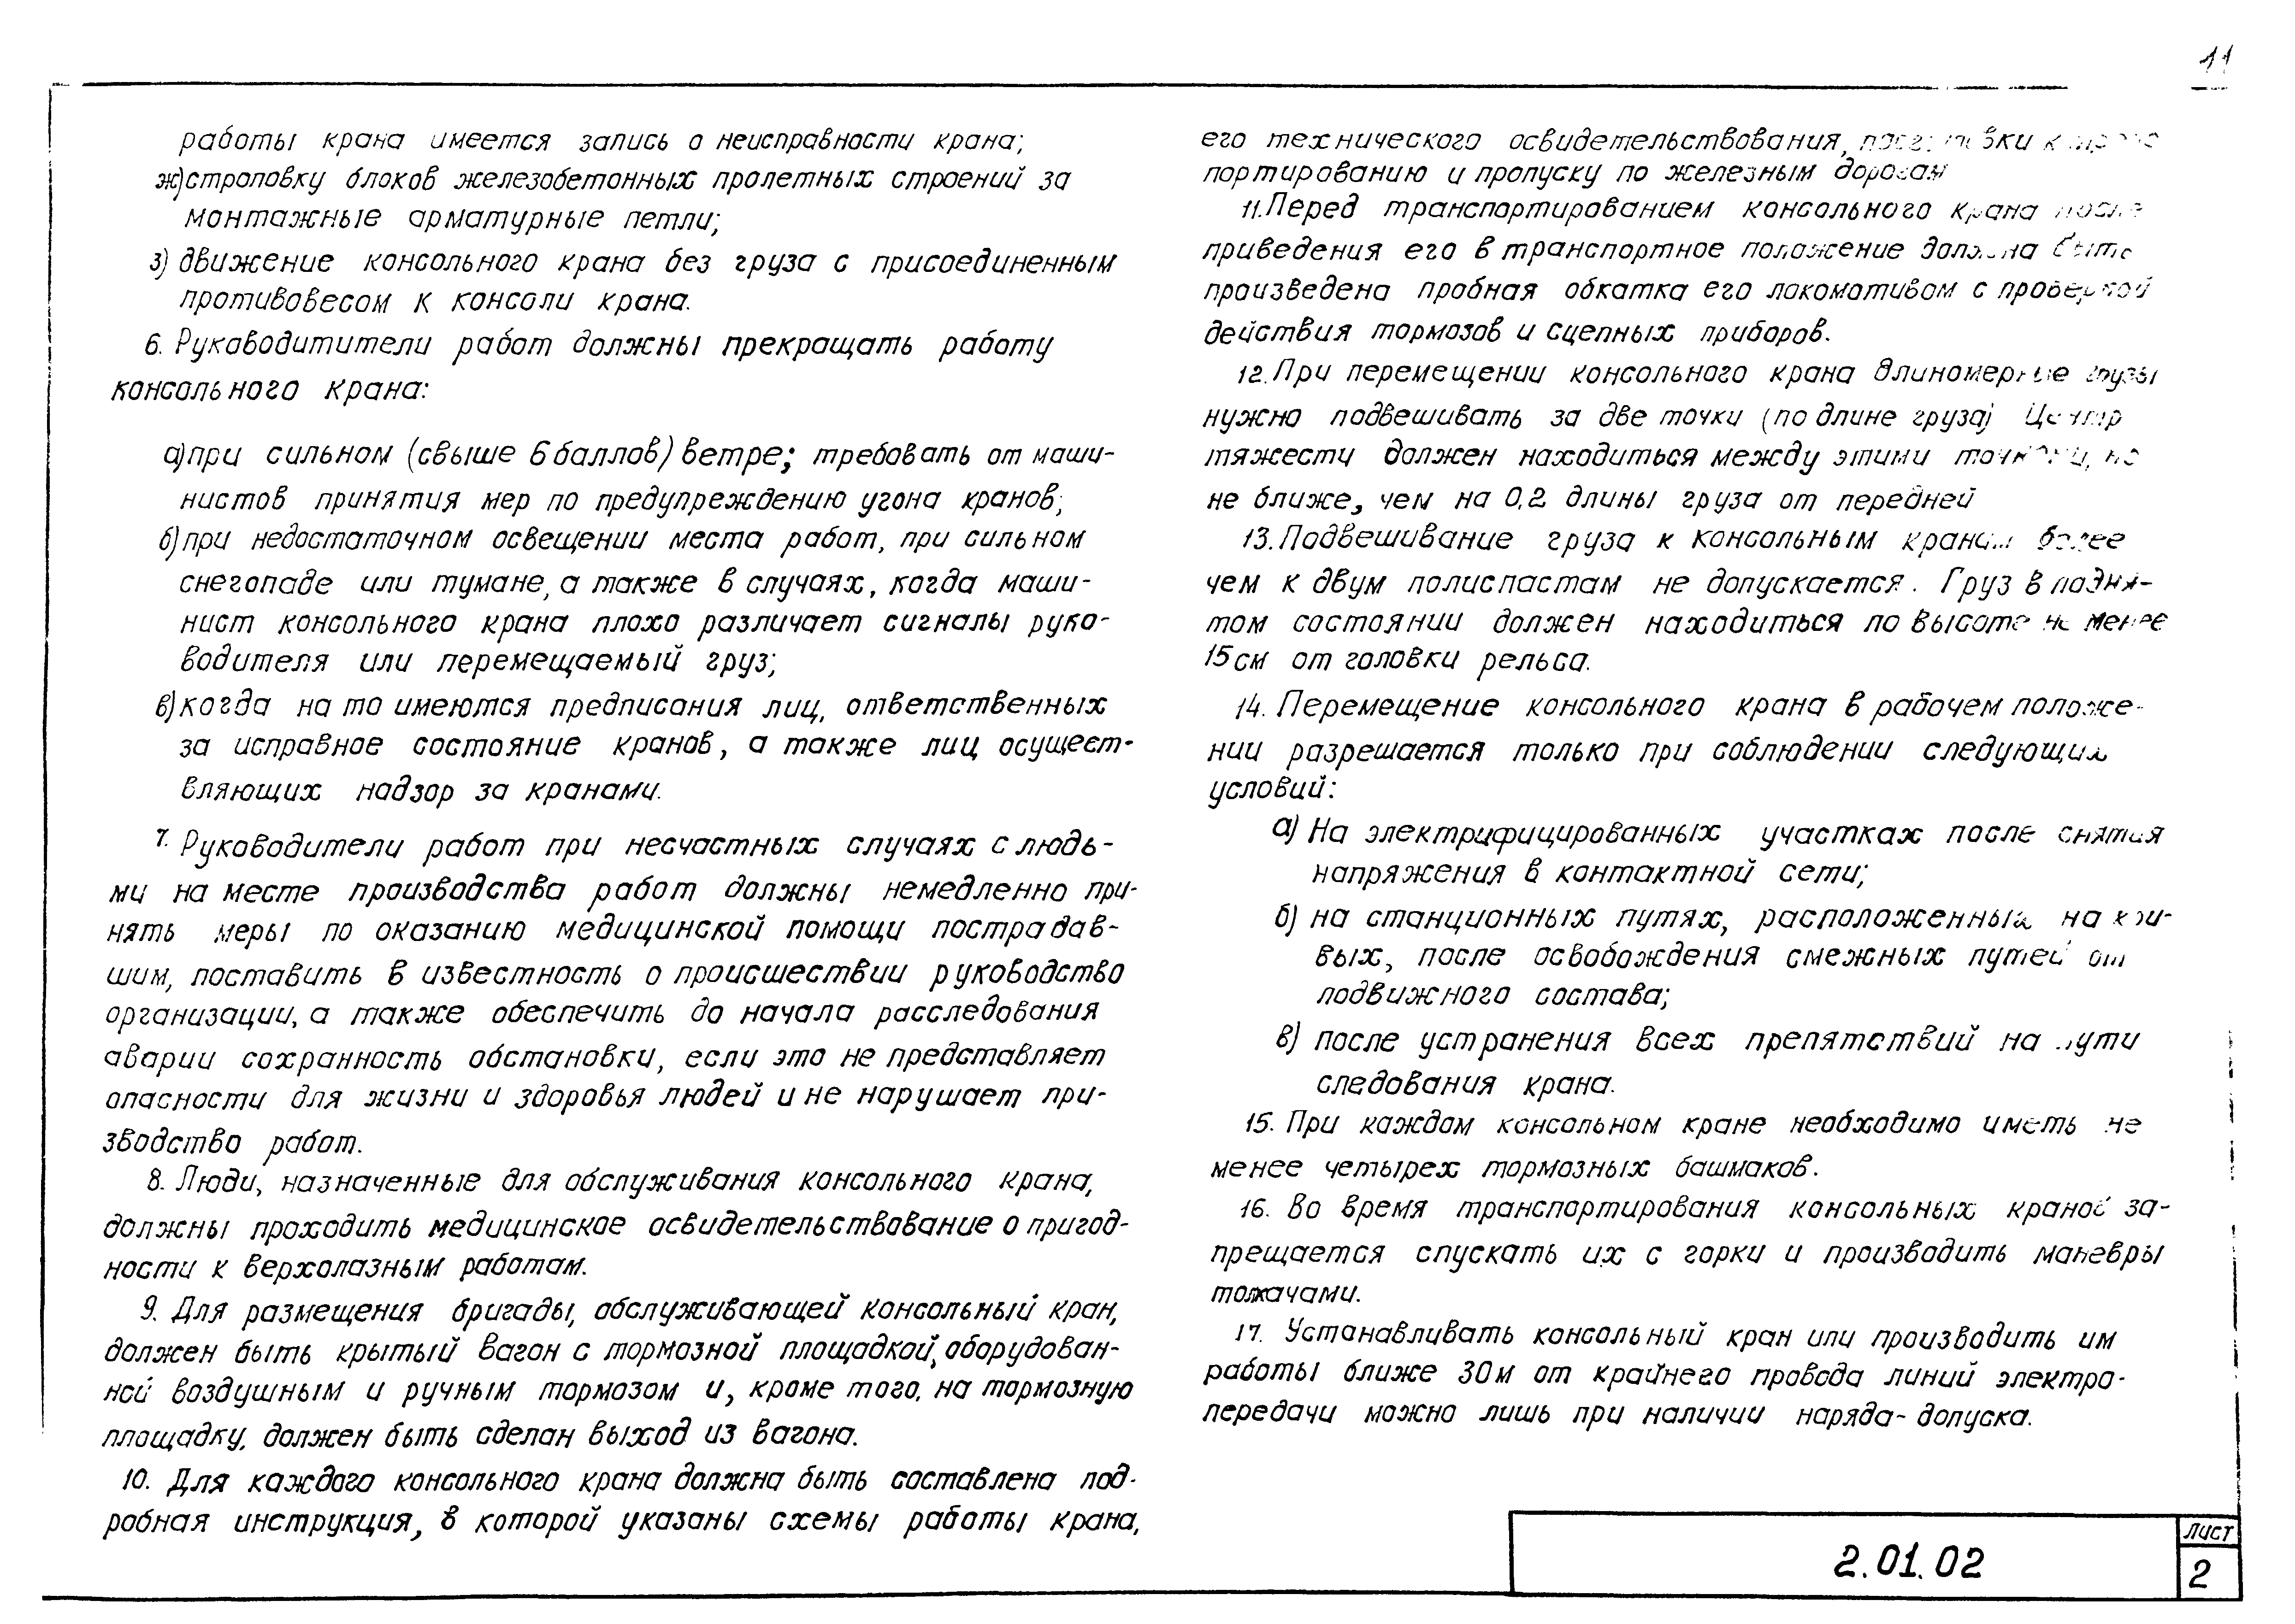 11
работы крана имеется запись о неисправности крана;
ж) строповку блоков железобетонных пролетных строений за
монтажные арматурные петли;
з) движение консольного крана без груза с присоединенным
противовесом к консоли крана.
6. Руководитители работ должны прекращать работу
консольного крана:
а) при сильном (свыше 6 баллов) ветре; требовать от маши-
нистов принятия мер по предупреждению угона кранов;
б) при недостаточном освещении места работ, при сильном
снегопаде или тумане, а также в случаях, когда маши-
нист консольного крана плохо различает сигналы руко-
водителя или перемещаемый груз;
в) когда на то имеются предписания лиц, ответственных
за исправное состояние кранов, а также лиц осущест-
вляющих надзор за кранами.
7. Руководители работ при несчастных случаях с людь-
ми на месте производства работ должны немедленно при-
нять меры по оказанию медицинской помощи пострадав-
шим, поставить в известность о происшествии руководство
организации, а также обеспечить до начала расследования
аварии сохранность обстановки, если это не представляет
опасности для жизни и здоровья людей и не нарушает при-
зводство работ.
8. Люди, назначенные для обслуживания консольного крана,
должны проходить медицинское освидетельствование о пригод-
ности к верхолазным работам.
9. Для размещения бригады, обслуживающей консольный кран,
должен быть крытый вагон с тормозной площадкой, оборудован-
ной воздушным и ручным тормозом и, кроме того, на тормозную
площадку, должен быть сделан выход из вагона.
10. Для каждого консольного крана должна быть составлена под-
робная инструкция, в которой указаны схемы работы крана,
его технического освидетельствования,
портированию и пропуску по железным дорогам
11. Перед транспортированием консольного крана после
приведения его в транспортное положение должна быть
произведена пробная обкатка его локомотивом с проверкой
действия тормозов и сцепных приборов.
12. При перемещении консольного крана длиномерные грузы
нужно подвешивать за две точки (по длине груза) Центр
тяжести должен находиться между этими точками, но
не ближе, чем на 0,2 длины груза от передней
13. Подвешивание груза к консольным кранам более
чем к двум полиспастам не допускается. Груз в подня-
том состоянии должен находиться по высоте не менее
15 см от головки рельса.
14. Перемещение консольного крана в рабочем положе-
нии разрешается только при соблюдении следующих
условий:
а) На электрифицированных участках после снятия
напряжения в контактной сети;
б) на станционных путях, расположенных на кри-
вых, после освобождения смежных путей от
подвижного состава;
в) после устранения всех препятствий на пути
следования крана.
15. При каждом консольном кране необходимо иметь не
менее четырех тормозных башмаков.
16. Во время транспортирования консольных кранов за-
прещается спускать их с горки и производить маневры
толкачами.
17. Устанавливать консольный кран или производить им
работы ближе 30 м от крайнего провода линий электро-
передачи можно лишь при наличии наряда-допуска.
2.01.02
лист
2